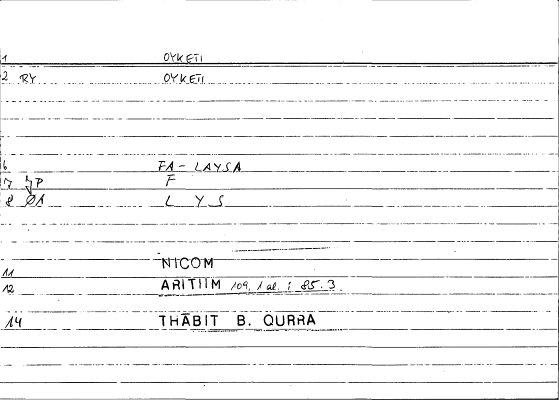 1 OYKETI
2 RY OYKETI
6 FA - LAYSA
7 JP F
8 ØA L Y S
11 NICOM
12 ARITIIM 109, 1 al. ; 85.3.
14 THĀBIT B. QURRA